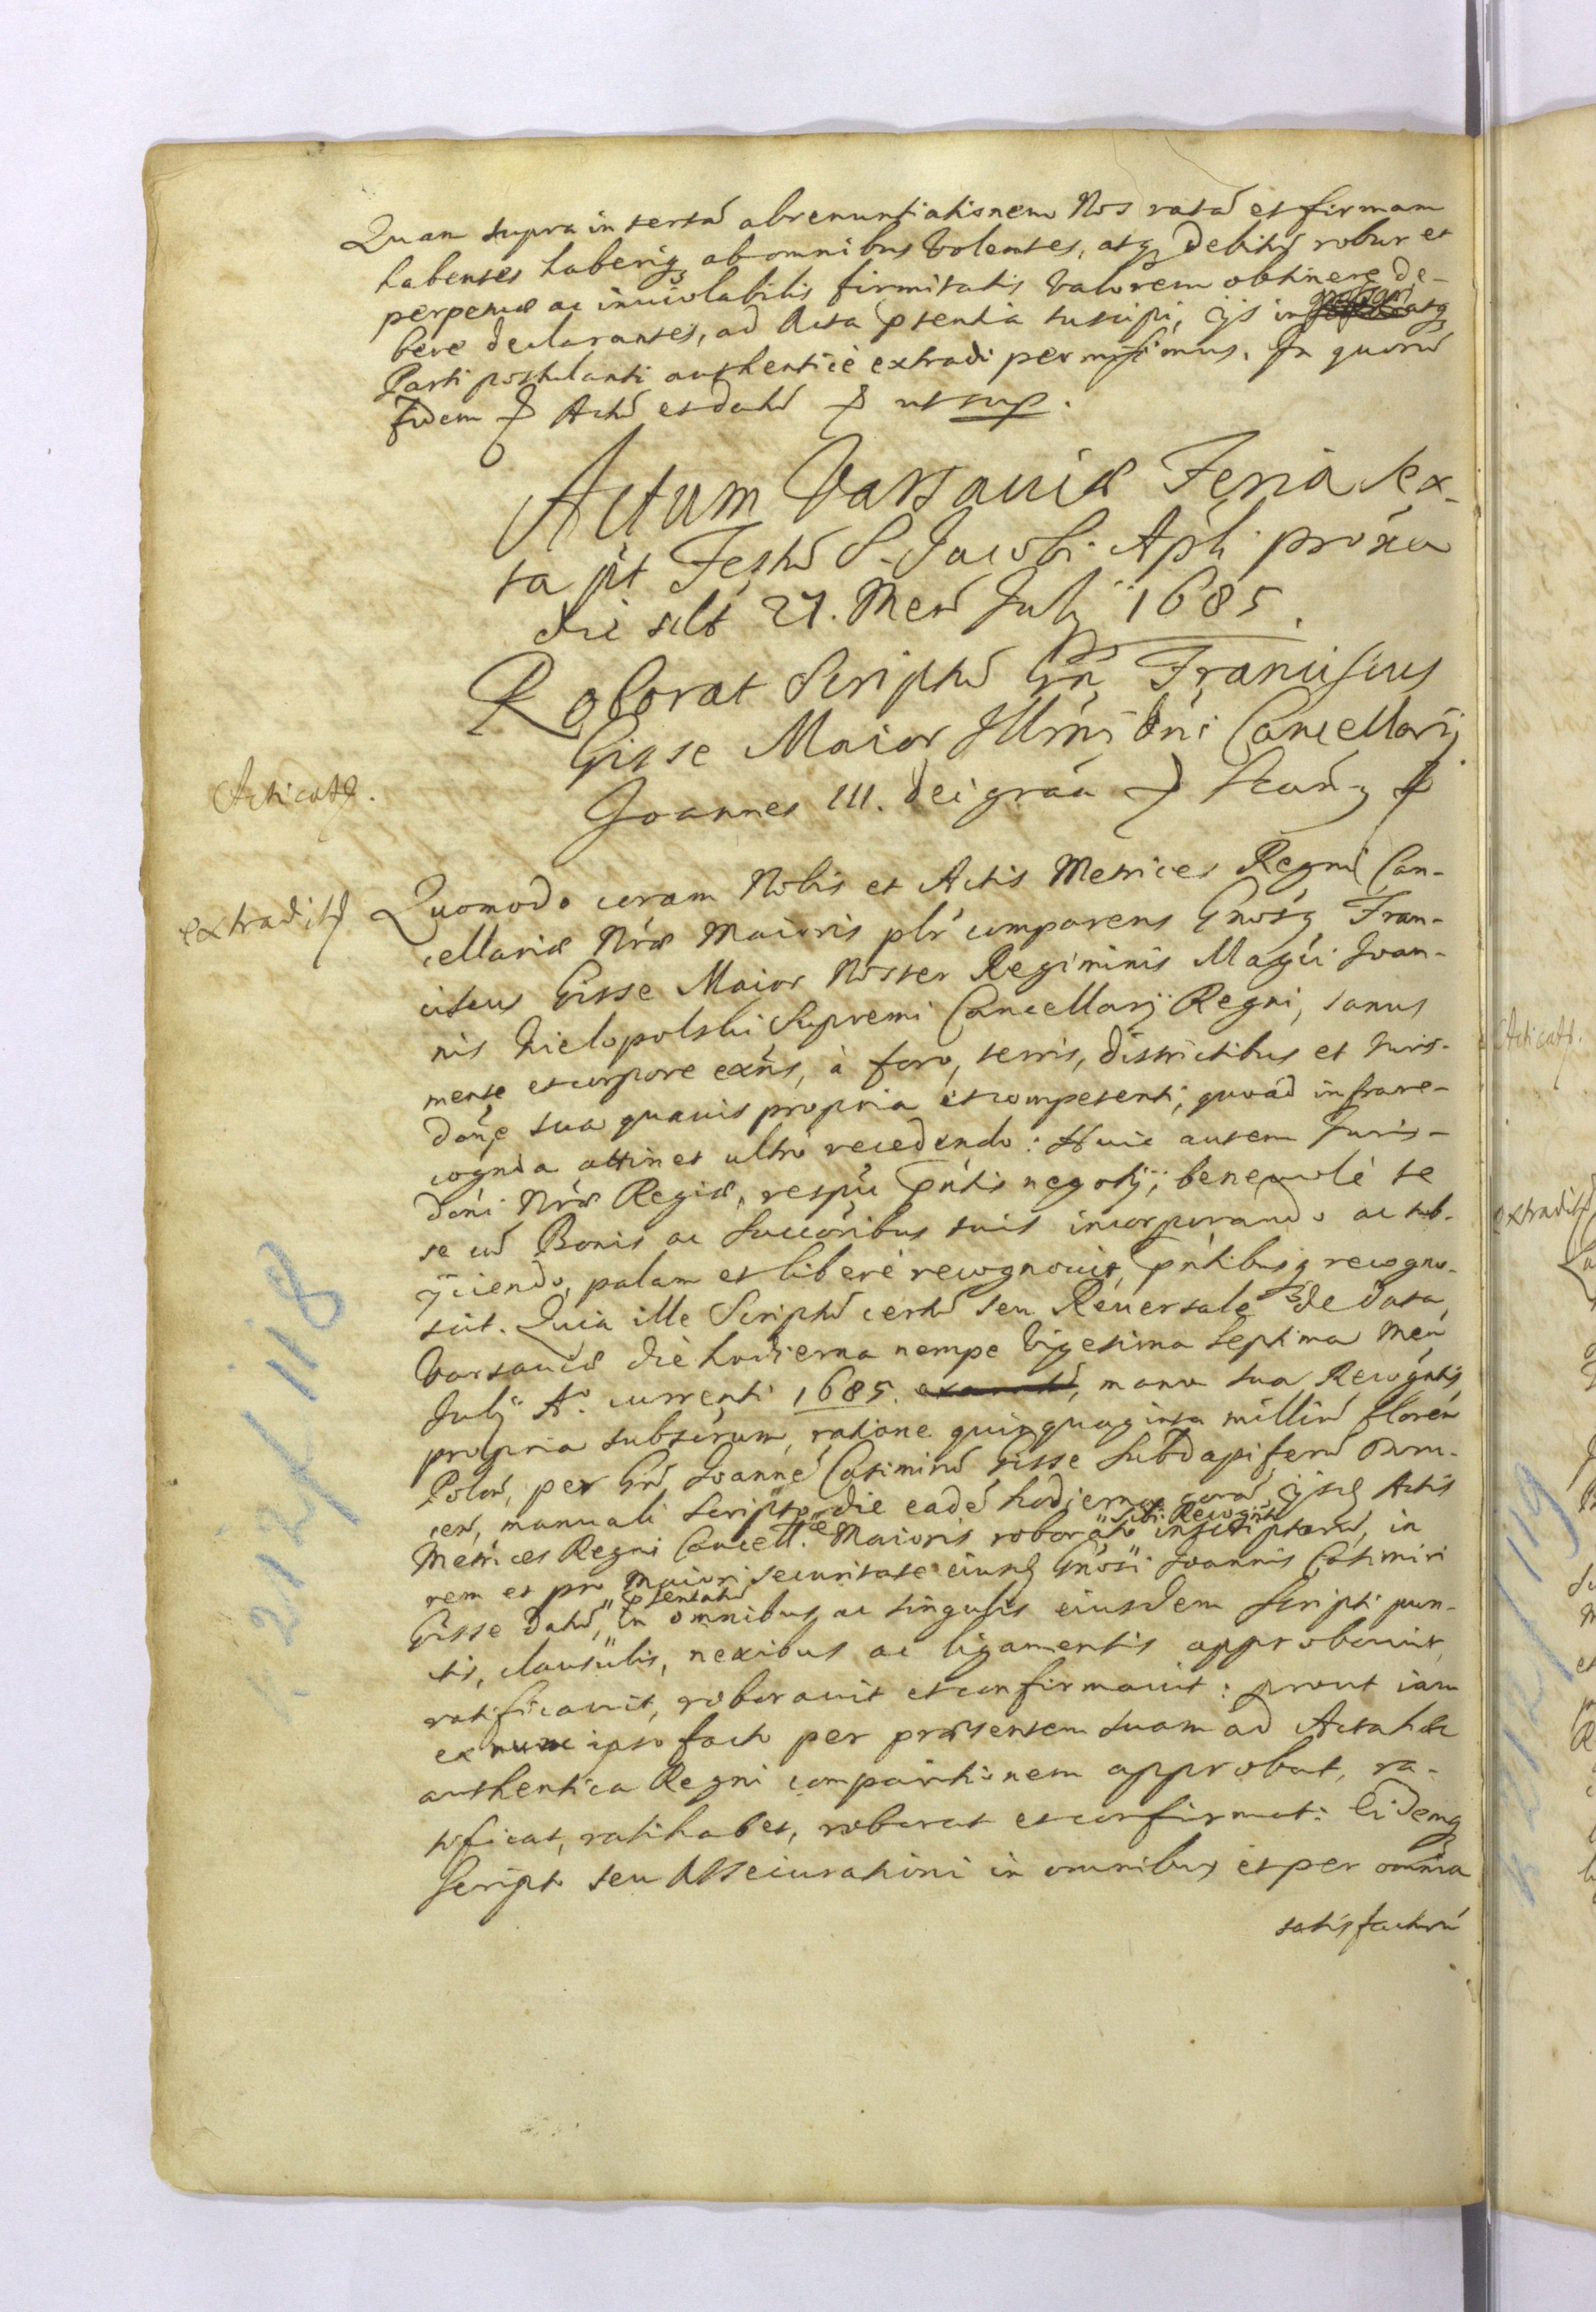 Quam supra insertã abrenuntiationem Nos ratã et firmam
habentes haberiq; ab omnibus Volentes, atq; debitũ robur et
perpetuæ ac inuiolabilis firmitatis Valorem obtinere de-
bere declarantes, ad Acta p̃sentia suscipi, ijs in
Parti postulanti authenticè extradi permisimus. In quorũ
fidem Actũ et datũ ut sup.
Actum Varsauiæ Feria sex-
ta pt̃ Festũ S. Jacobi Apli próxa
die sclt 27. Men̄ Julij 1685.
Roborat Scriptũ Gn̄s Franciscus
Gisse Maior Illm̃j dn̄i Cancellarij
Acticat9.
Joannes III. Dei gráa
extradit9
Quomodo coram Nobis et Actis Metrices Regni Can-
cellariæ Nr̃æ Maioris plr̃ comparens Gnosq Fran-
ciscus Gisse Maior Noster Regiminis Magci Joan-
nis Wielopolski Supremi Cancellarij Regni, sanus
mente et corpore exn̄s, à foro, terris, districtibus et Juris-
don̄e sua quauis propria et competenti; quoad infrare-
cognta attinet ultrò recedendo: Huic autem Juris-
dōni Nr̃æ Regiæ, respũ p̃ntis negotij, beneuolè se
se cũ Bonis ac Succōribus suis incorporando ac sub-
ijciendo, palam et liberè recognouit, p̃ntibusq; recogno-
scit. Quia ille Scriptũ certũ seu Reuersale de data
Varsauiæ die hodierna nempe Vigesima Septima Men̄
Julij Ao. currenti 1685. manu sua Recognt̃is
propria subscrum, ratione quinquaginta millin̄ floren̄
Polon̄, per Gn̄ Joannē Casimirũ Gisse Subdapiferũ
cen̄, manuali Scripto die eadē hodierna corā ijsd Actis
sibi Recognti
Metrices Regni Cancell.æ Maioris roborato inscriptarũ, in
rem et pro maiori securitate eiusd Gnosi Joannis Casimiri
p̃sentatũ
Gisse datũ, in omnibus ac singulis eiusdem Scripti pun-
ctis, clausulis, nexibus ac ligamentis approbauit,
ratificauit, roborauit et confirmauit: prout iam
ex nunc ipso facto per præsentem suam ad Acta hæc
authentica Regni comparitionem approbat, ra-
tificat, ratihabet, roborat et confirmat: Eidemq;
Scripto seu Assecurationi in omnibus et per omnia
satisfacturũ
212/118
Acticat9.
extradit9
212/119